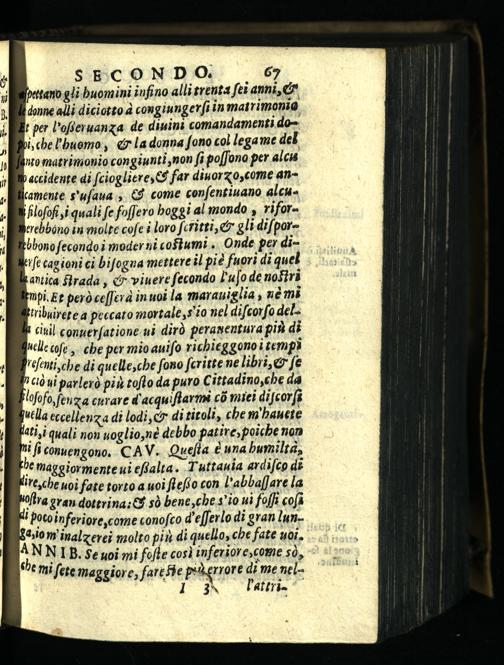 SECONDO. 67
aspettano gli huomini infino alli trenta sei anni, &
le donne alli diciotto à congiungersi in matrimonio
Et per l'osseruanza de diuini comandamenti do-
poi, che l'huomo, & la donna sono col legame del
santo matrimonio congiunti, non si possono per alcu
no accidente di sciogliere, & far diuorzo, come an-
ticamente s'usaua, & come consentiuano alcu-
ni filosofi, i quali se fossero hoggi al mondo, rifor-
merebbono in molte cose i loro scritti, & gli dispor-
rebbono secondo i moderni costumi. Onde per di-
uerse cagioni ci bisogna mettere il piè fuori di quel
la antica strada, & viuere secondo l'uso de nostri
tempi. Et però cesserà in uoi la marauiglia, nè mi
attribuirete a peccato mortale, s'io nel discorso del-
la ciuil conuersatione ui dirò perauentura più di
quelle cose, che per mio auiso richieggono i tempi
presenti, che di quelle, che sono scritte ne libri, & se
in ciò ui parlerò più tosto da puro Cittadino, che da
filosofo, senza curare d'acquistarmi cō miei discorsi
quella eccellenza di lodi, & di titoli, che m'hauete
dati, i quali non uoglio, nè debbo patire, poiche non
mi si conuengono. CAV. Questa è una humiltà,
che maggiormente ui essalta. Tuttauia ardisco di
dire, che uoi fate torto a uoi stesso con l'abbassare la
uostra gran dottrina: & sò bene, che s'io ui fossi così
di poco inferiore, come conosco d'esserlo di gran lun-
ga, io m'inalzerei molto più di quello, che fate uoi.
ANNIB. Se uoi mi foste così inferiore, come sò,
che mi sete maggiore, fareste più errore di me nel-
I 3 l'attri-